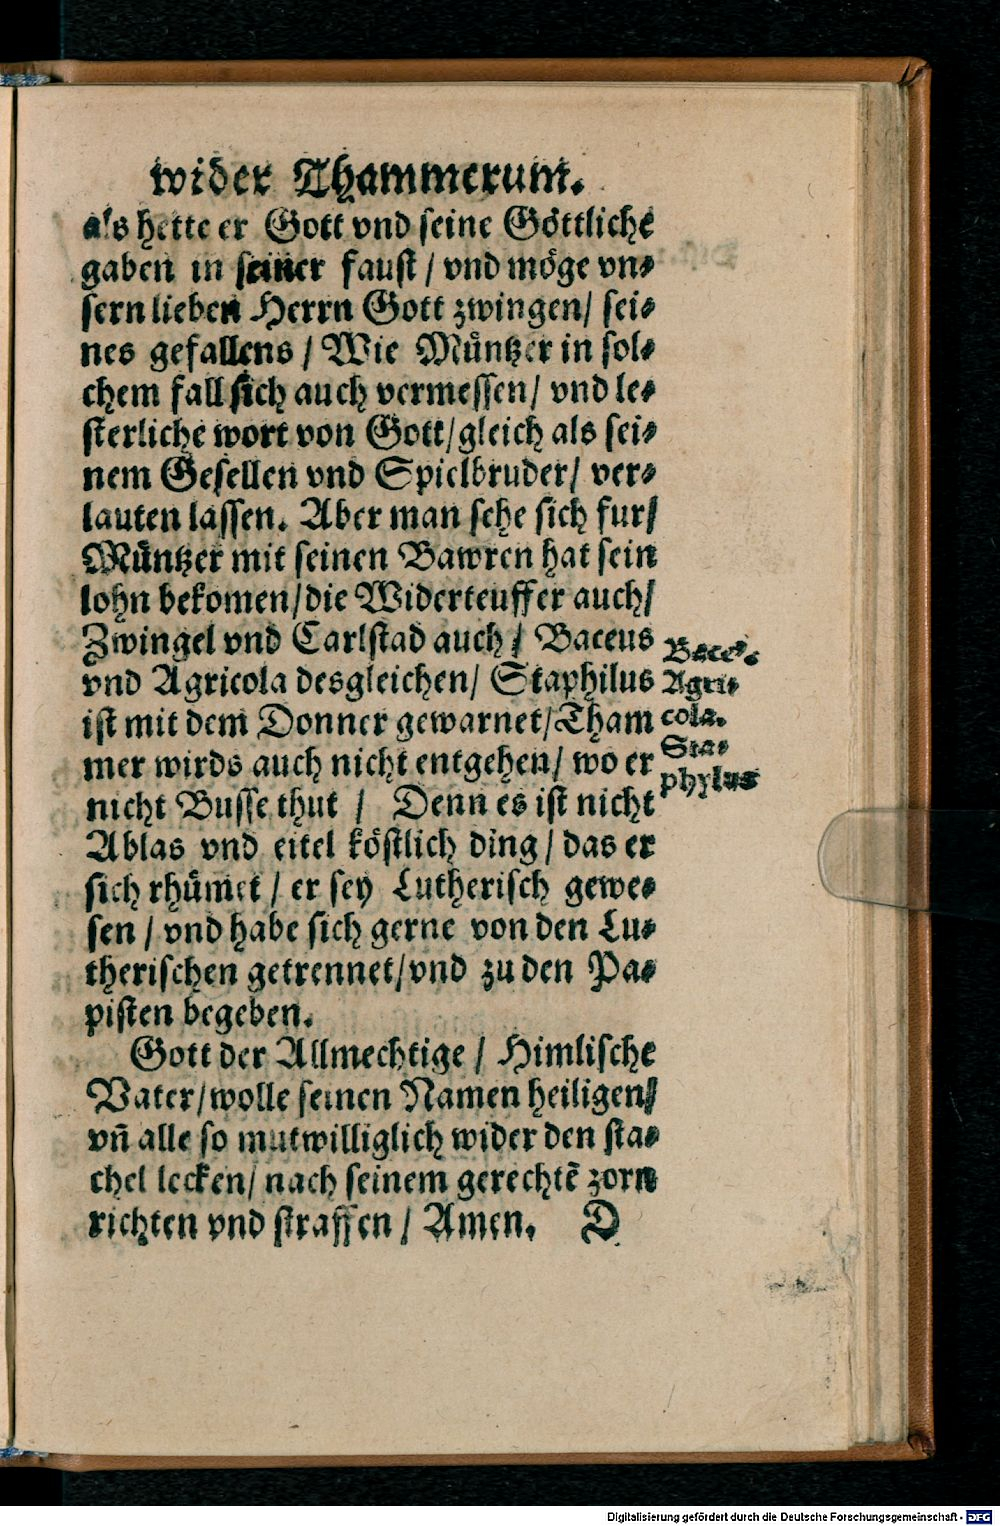 wider Thammerum.
als hette er Gott vnd seine Göttliche
gaben in seiner faust / vnd möge vn⸗
sern lieben Herrn Gott zwingen / sei⸗
nes gefallens / Wie Müntzer in sol⸗
chem fall sich auch vermessen / vnd le⸗
sterliche wort von Gott / gleich als sei⸗
nem Gesellen vnd Spielbruder / ver⸗
lauten lassen. Aber man sehe sich fur /
Müntzer mit seinen Bawren hat sein
lohn bekomen / die Widerteuffer auch /
Zwingel vnd Carlstad auch / Baceus
vnd Agricola desgleichen / Staphilus
ist mit dem Donner gewarnet / Tham
mer wirds auch nicht entgehen / wo er
nicht Busse thut / Denn es ist nicht
Ablas vnd eitel köstlich ding / das er
sich rhümet / er sey Lutherisch gewe⸗
sen / vnd habe sich gerne von den Lu⸗
therischen getrennet / vnd zu den Pa⸗
pisten begeben.
Gott der Allmechtige / Himlische
Vater / wolle seinen Namen heiligen /
vñ alle so mutwilliglich wider den sta⸗
chel lecken / nach seinem gerechtē zorn
richten vnd straffen / Amen. D
Agri⸗
cola.
Sta⸗
phylus
Digitalisierung gefördert durch die Deutsche Forschungsgemeinschaft - DFG